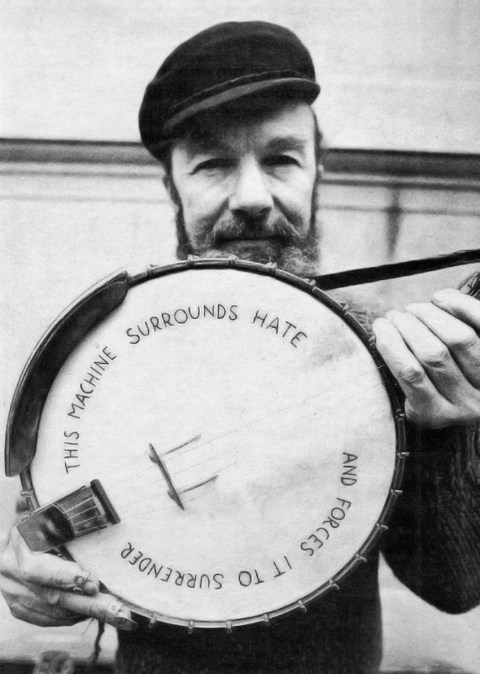 THIS MACHINE SURROUNDS HATE
AND FORCES IT TO SURRENDER